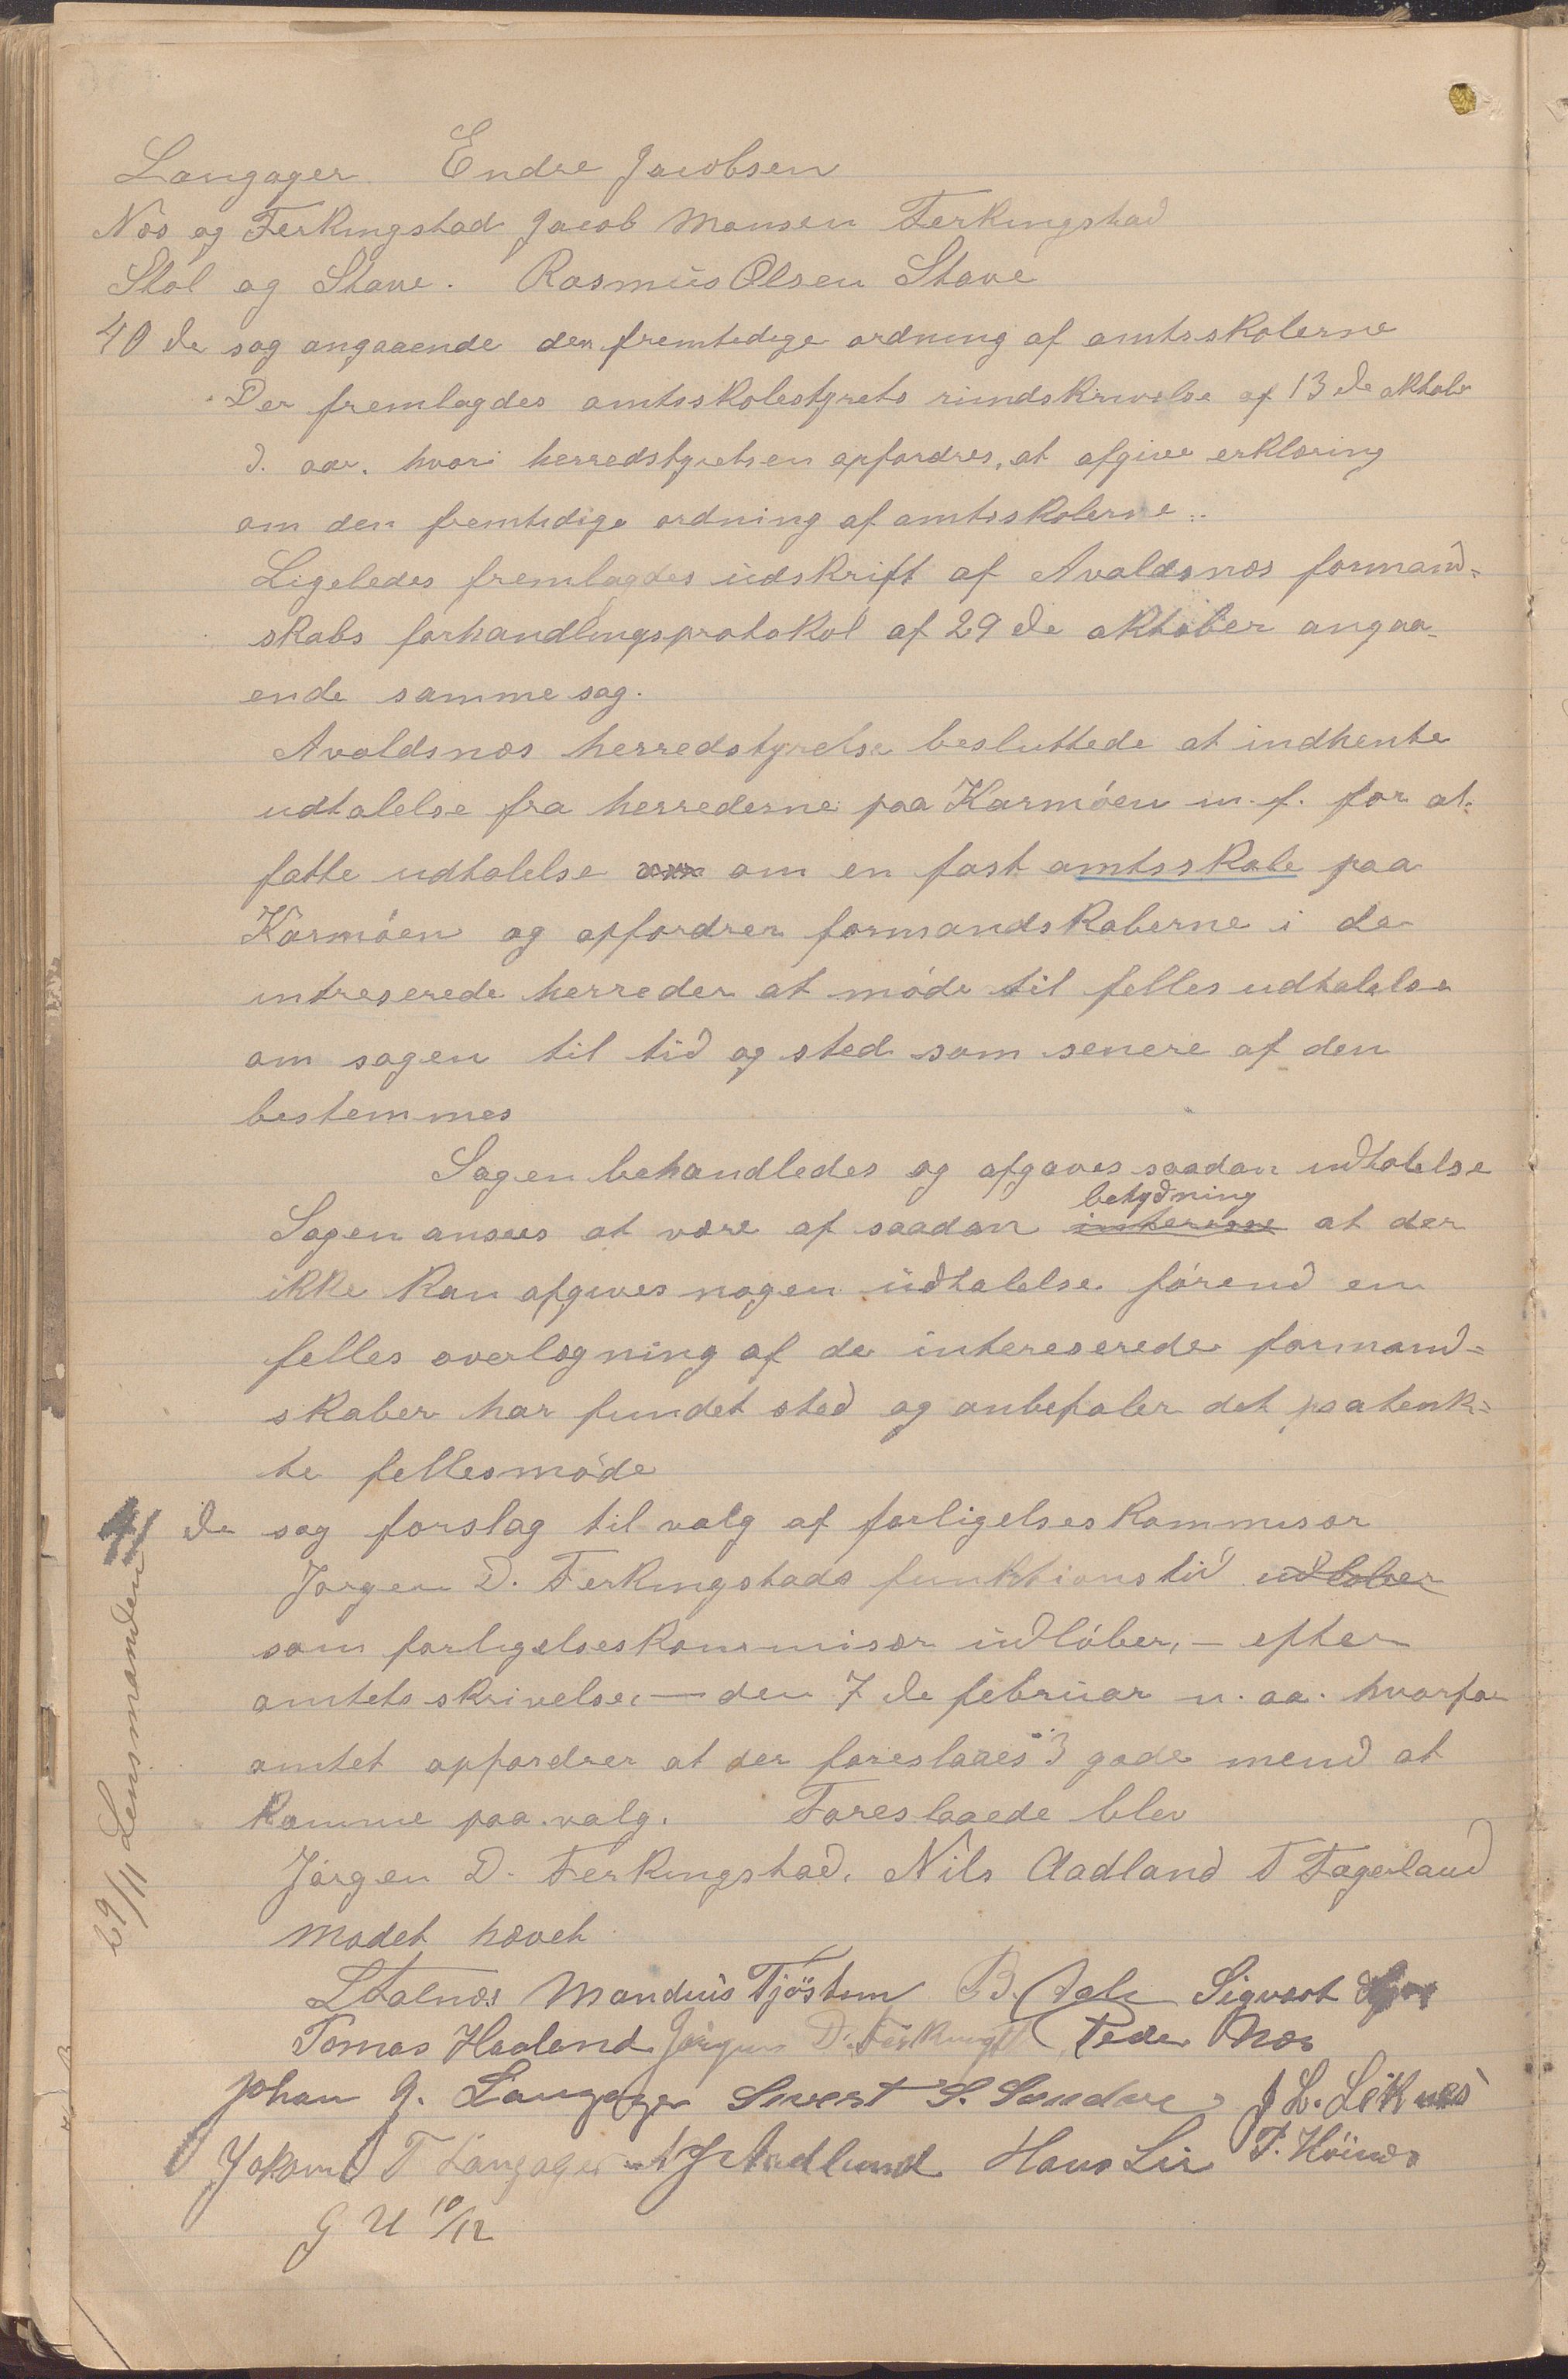 Langager. Endre Jacobsen
Næs og Ferkingstad Jacob Monsen Ferkingstad
Stol og Stave. Rasmus Olsen Stave
40 de sag angaaende den fremtidige ordning af amtsskolerne
Der fremlagdes amtsskolestyrets rundskrivelse af 13 de oktober
d. aar. hvori herredstyrelsen opfordres, at afgive erklæring
om den fremtidige ordning af amtsskolerne.
Ligeledes fremlagdes udskrift af Avaldsnæs formand-
skabs forhandlingsprotokol af 29 de oktober angaa-
ende samme sag.
Avaldsnæs herredstyrelse besluttede at indhente
udtalelse fra herrederne paa Karmøen m.f. for at
fatte udtalelse om en fast amtsskole paa
Karmøen og opfordrer formandskaberne i de
intreserede herreder at møde til felles udtalelse
om sagen til tid og sted som senere af den
bestemmes
Sagen behandledes og afgaves saadan udtalelse
betydning
Sagen ansees at være af saadan interesse at der
ikke kan afgives nogen udtalelse førend en
felles overlægning af de intereserede formand-
skaber har fundet sted og anbefaler det paatenk-
te fellesmøde
41 de sag forslag til valg af forligelseskommisær
Jørgen D. Ferkingstads funktionstid udløber
som forligelseskommisær udløber, - efter
amtets skrivelse, - den 7 de februar n. aa. hvorfor
amtet opfordrer at der foreslaaes 3 gode mend at
komme paa valg. Foreslaaede blev
Jørgen D. Ferkingstad. Nils Aadland T Fagerland
Mødet hævet
29/11 Lensmanden
L Stalnæs Mandius Tjøstem B. Dale Sigvart
Tomas Haaland Jørgen D. Ferkingst Peder Næs
Johan J. Langager Sivert S. Sandve J L. Liknes
Jakom T Langager Aadland Hans Lie T. Høinæs
G U 10/12